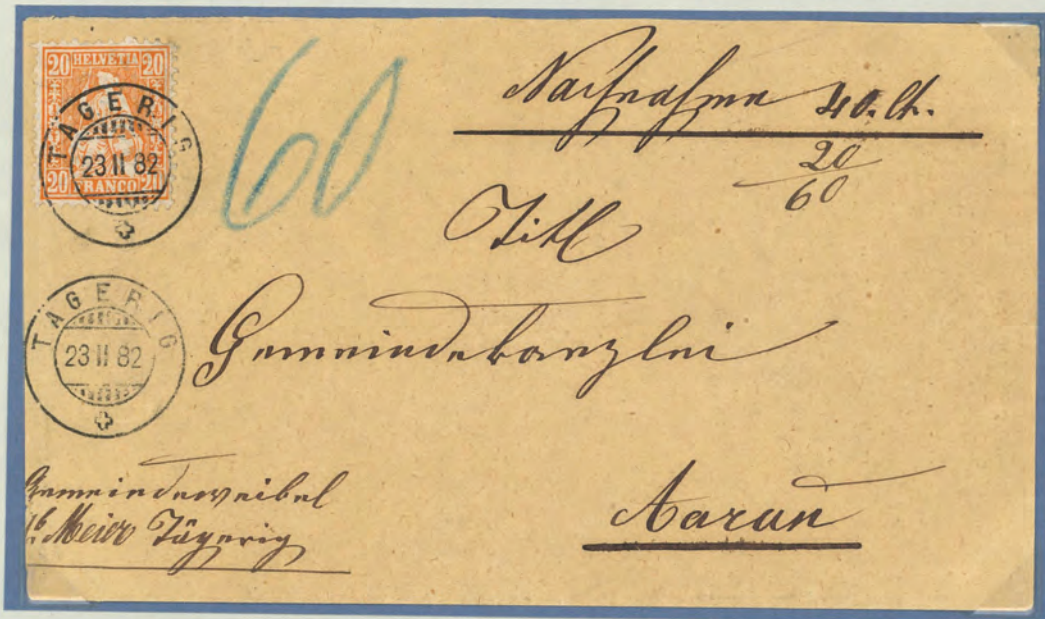 20 HELVETIA 20
20 FRANCO 20
TÄGERIG
23 II 82
60
Nachnahme 40. Ct.
20
60
Titl
Gemeindekanzlei
TÄGERIG
23 II 82
Gemeindeweibel
Meier Tägerig
Aarau